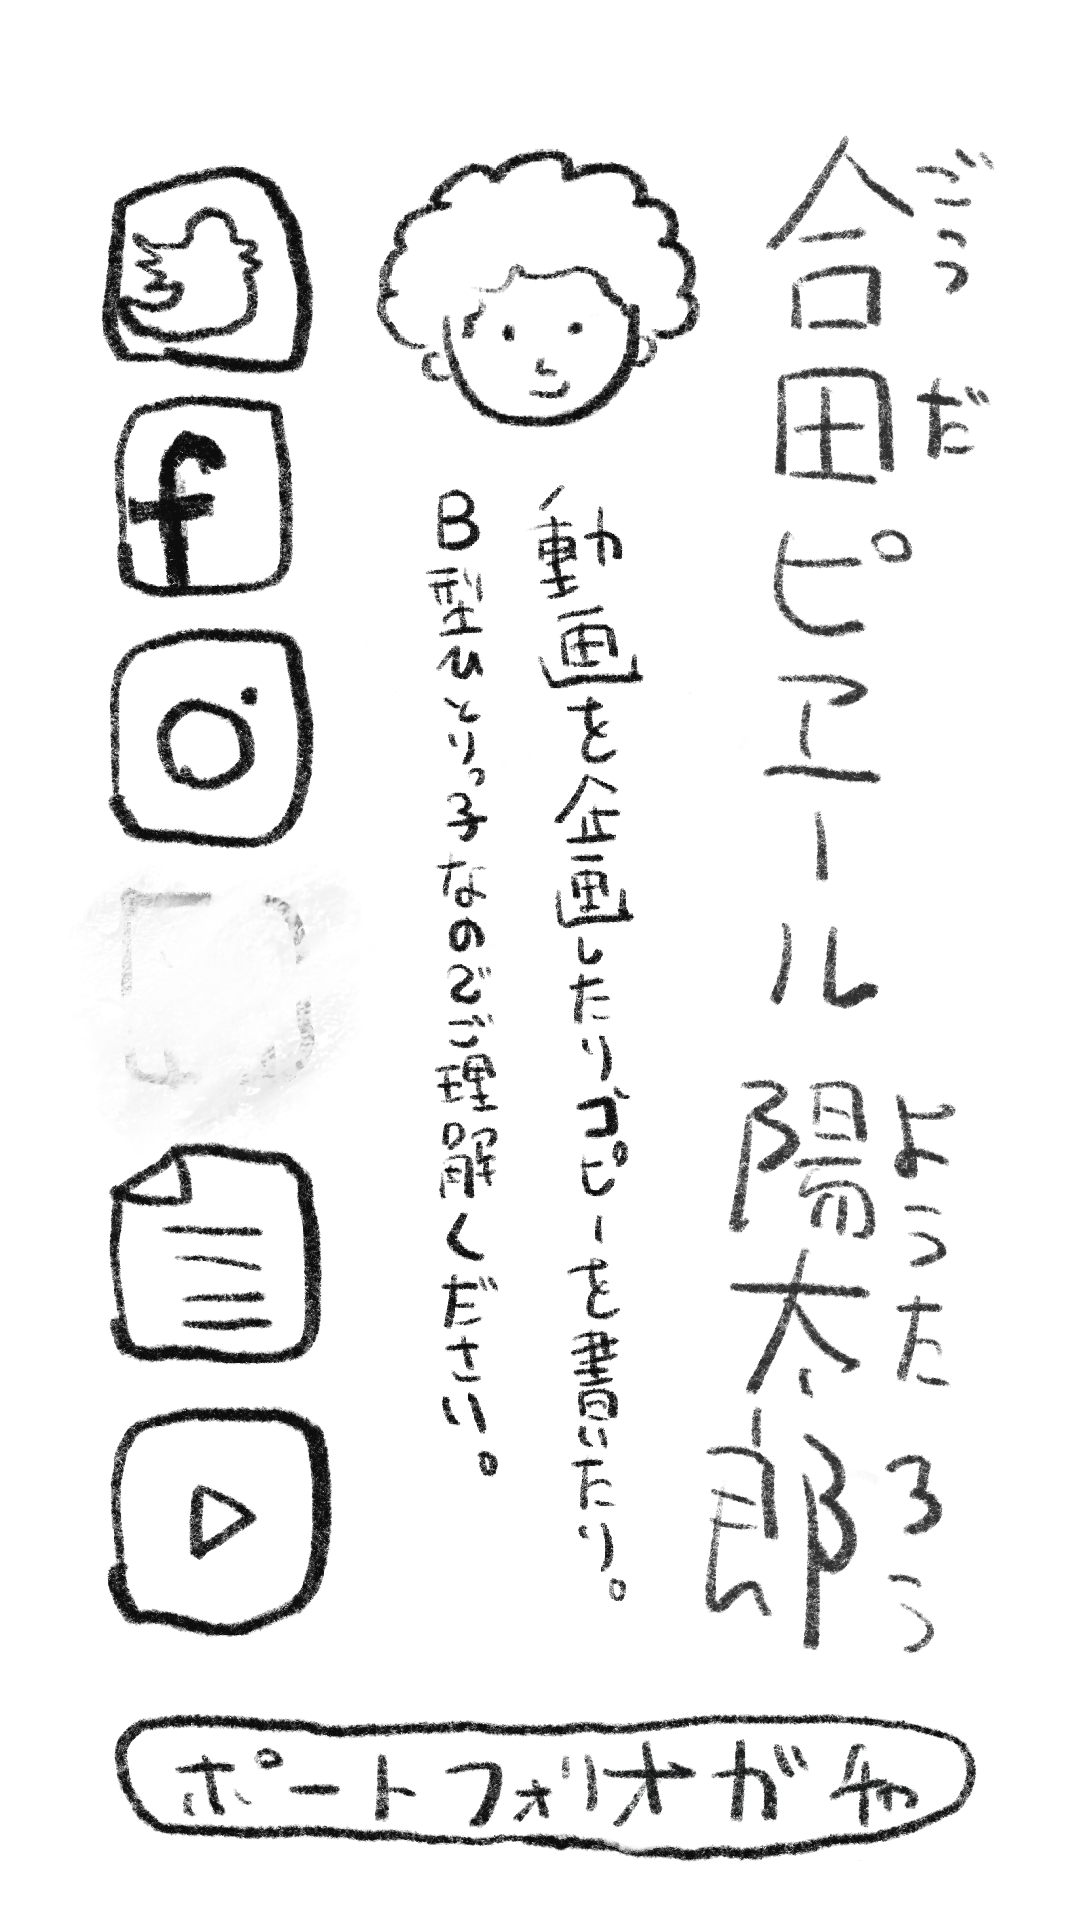 ごう だ
合田ピエール
よう た ろう
陽太郎
動画を企画したりコピーを書いたり。
B型ひとりっ子なのでご理解ください。
f
ポートフォリオガチャ